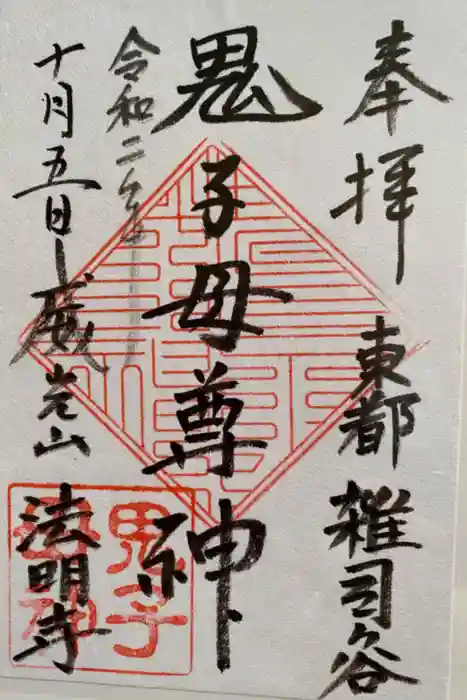 奉拝
東都
雑司ヶ谷
鬼子母尊神
令和二年
十月五日
威光山
法明寺